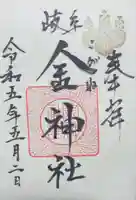 奉拝
岐阜
こがね
金神社
令和五年五月二日